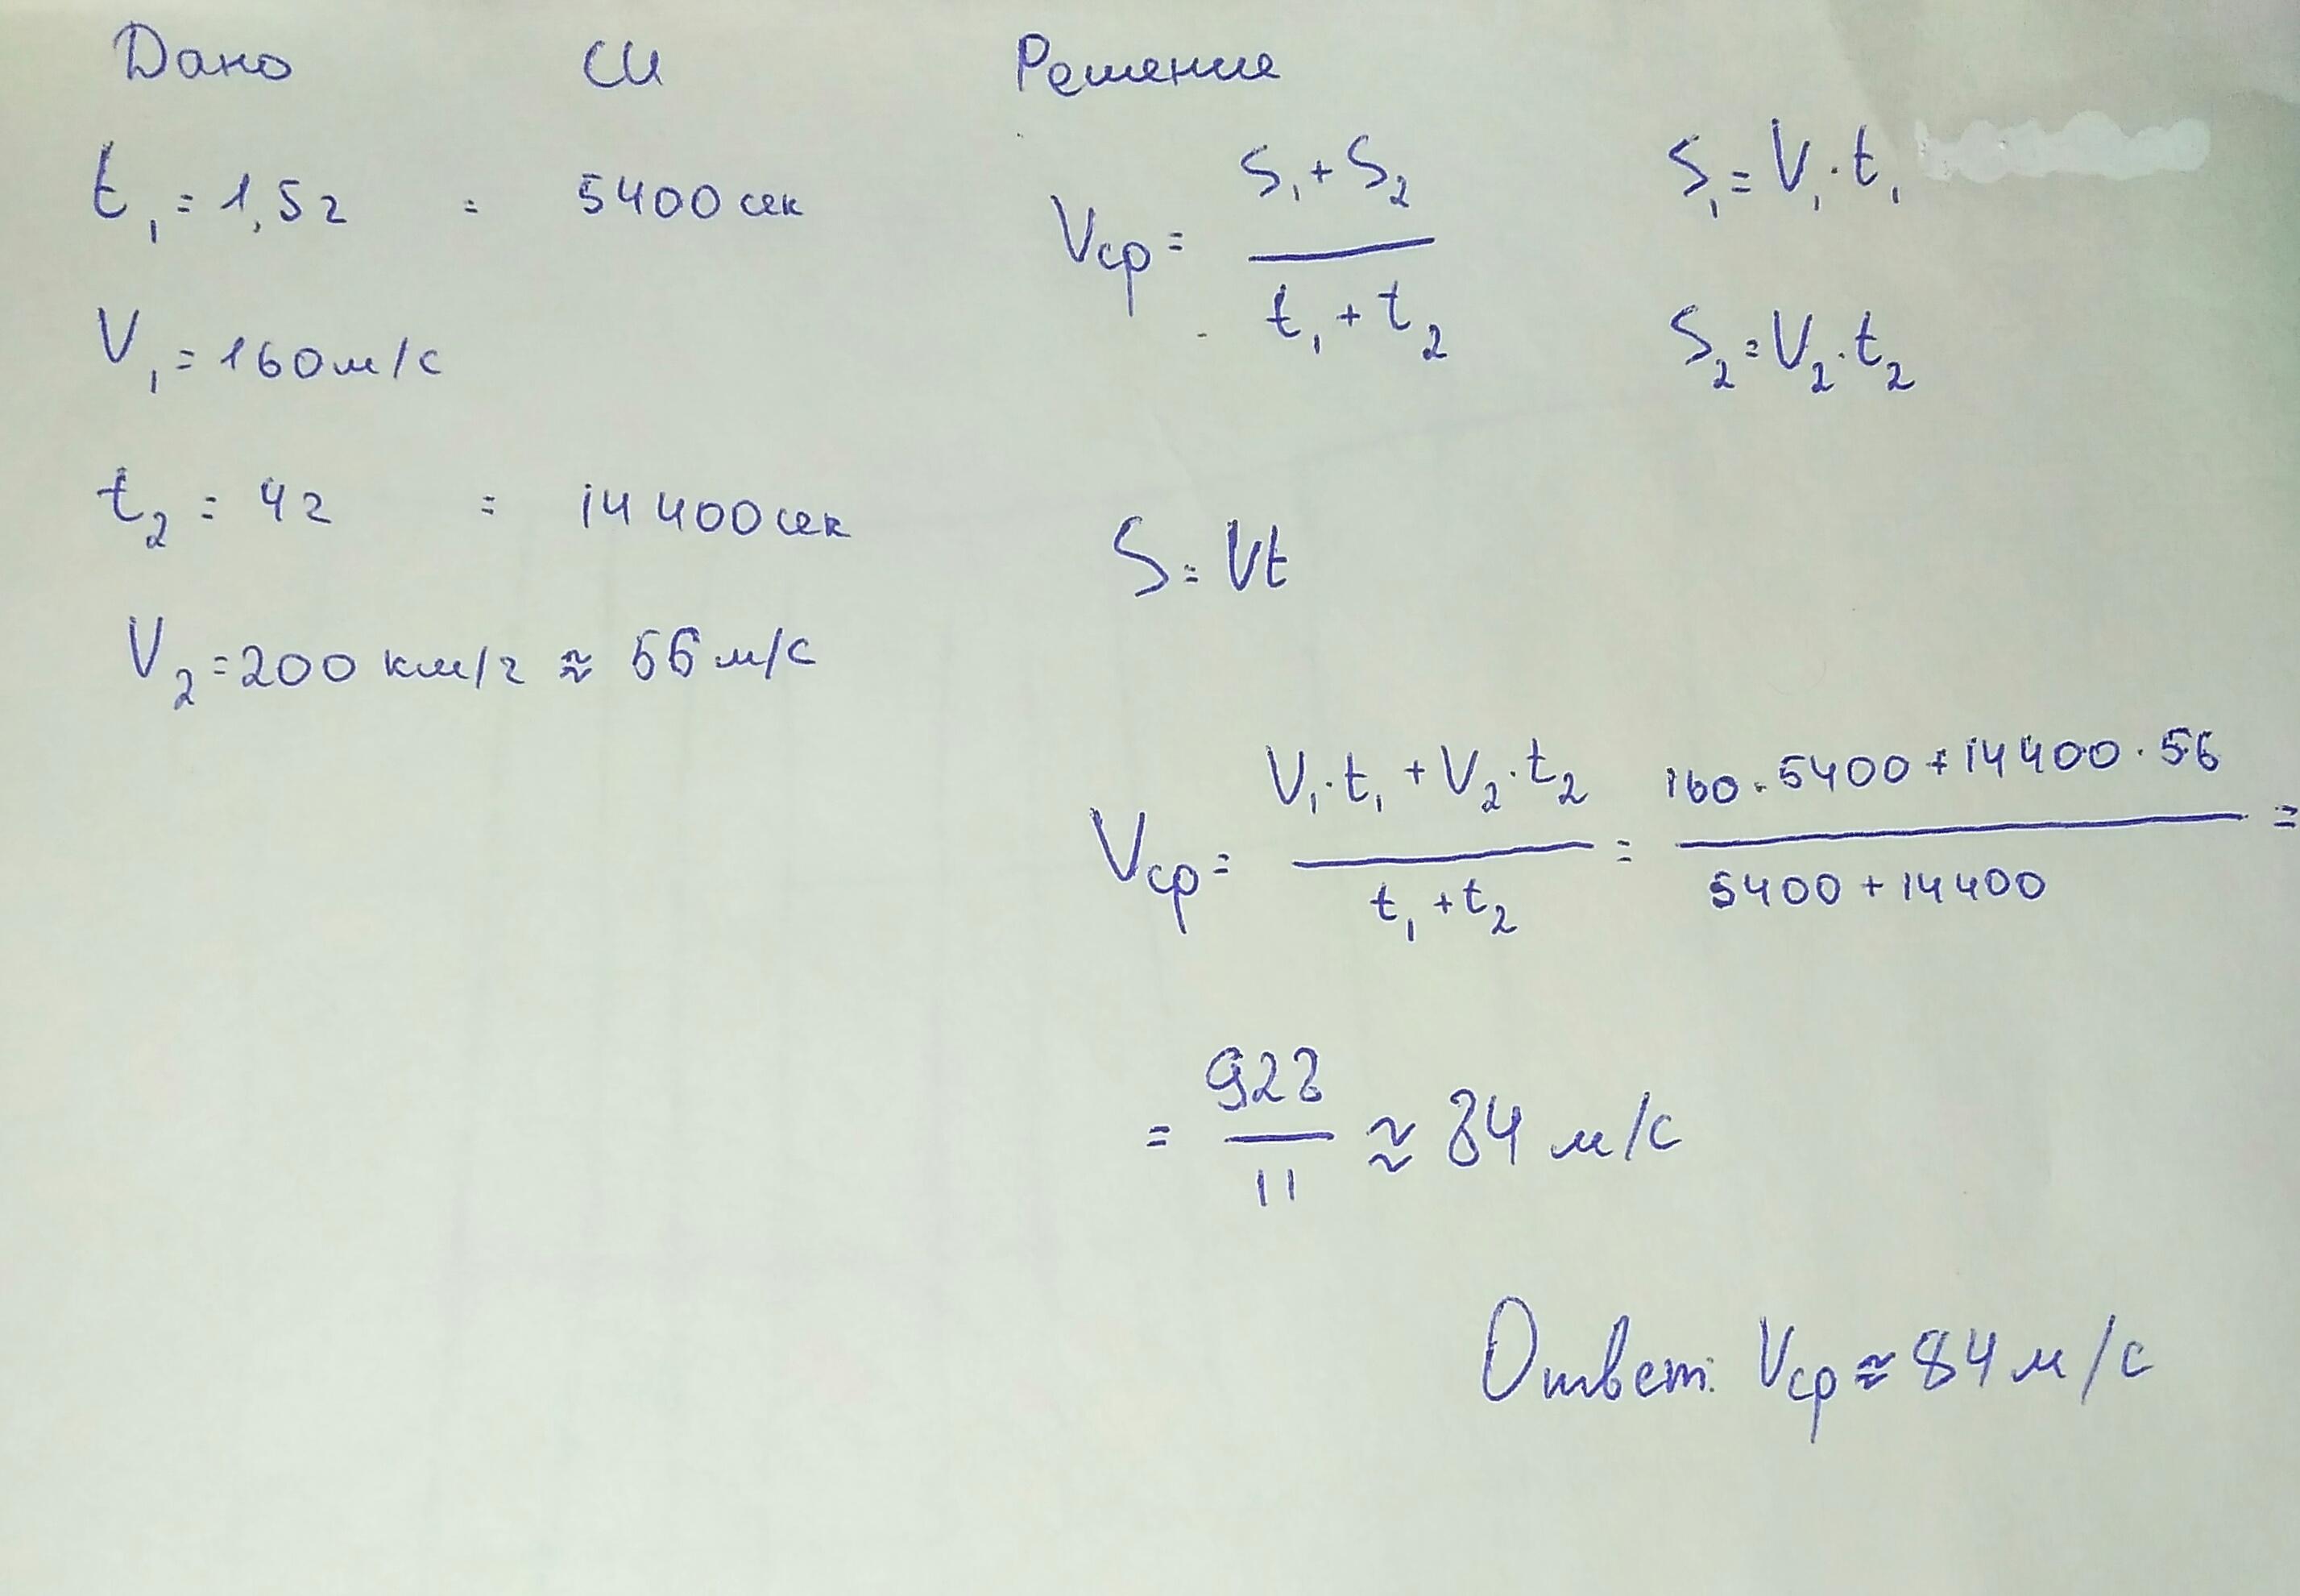 Дано СИ Решение
t₁ = 1,5ч = 5400 сек
V₁ = 160 м/с
t₂ = 4ч = 14400 сек
V₂ = 200 км/ч ≈ 56 м/с
Vср = (S₁ + S₂) / (t₁ + t₂)
S₁ = V₁ · t₁
S₂ = V₂ · t₂
S = Vt
Vср = (V₁ · t₁ + V₂ · t₂) / (t₁ + t₂) = (160 · 5400 + 14400 · 56) / (5400 + 14400) =
= 928 / 11 ≈ 84 м/с
Ответ: Vср ≈ 84 м/с